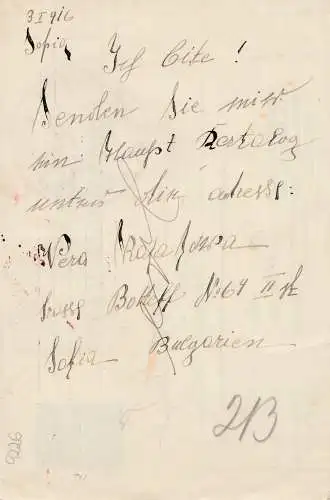 3 I 916
Sofia
Ich bite!
Senden Sie mir
ein Haupt Kartalog
unter die adress:
Wera
Botteff No 64 II st
Sofia Bulgarien
213
9226